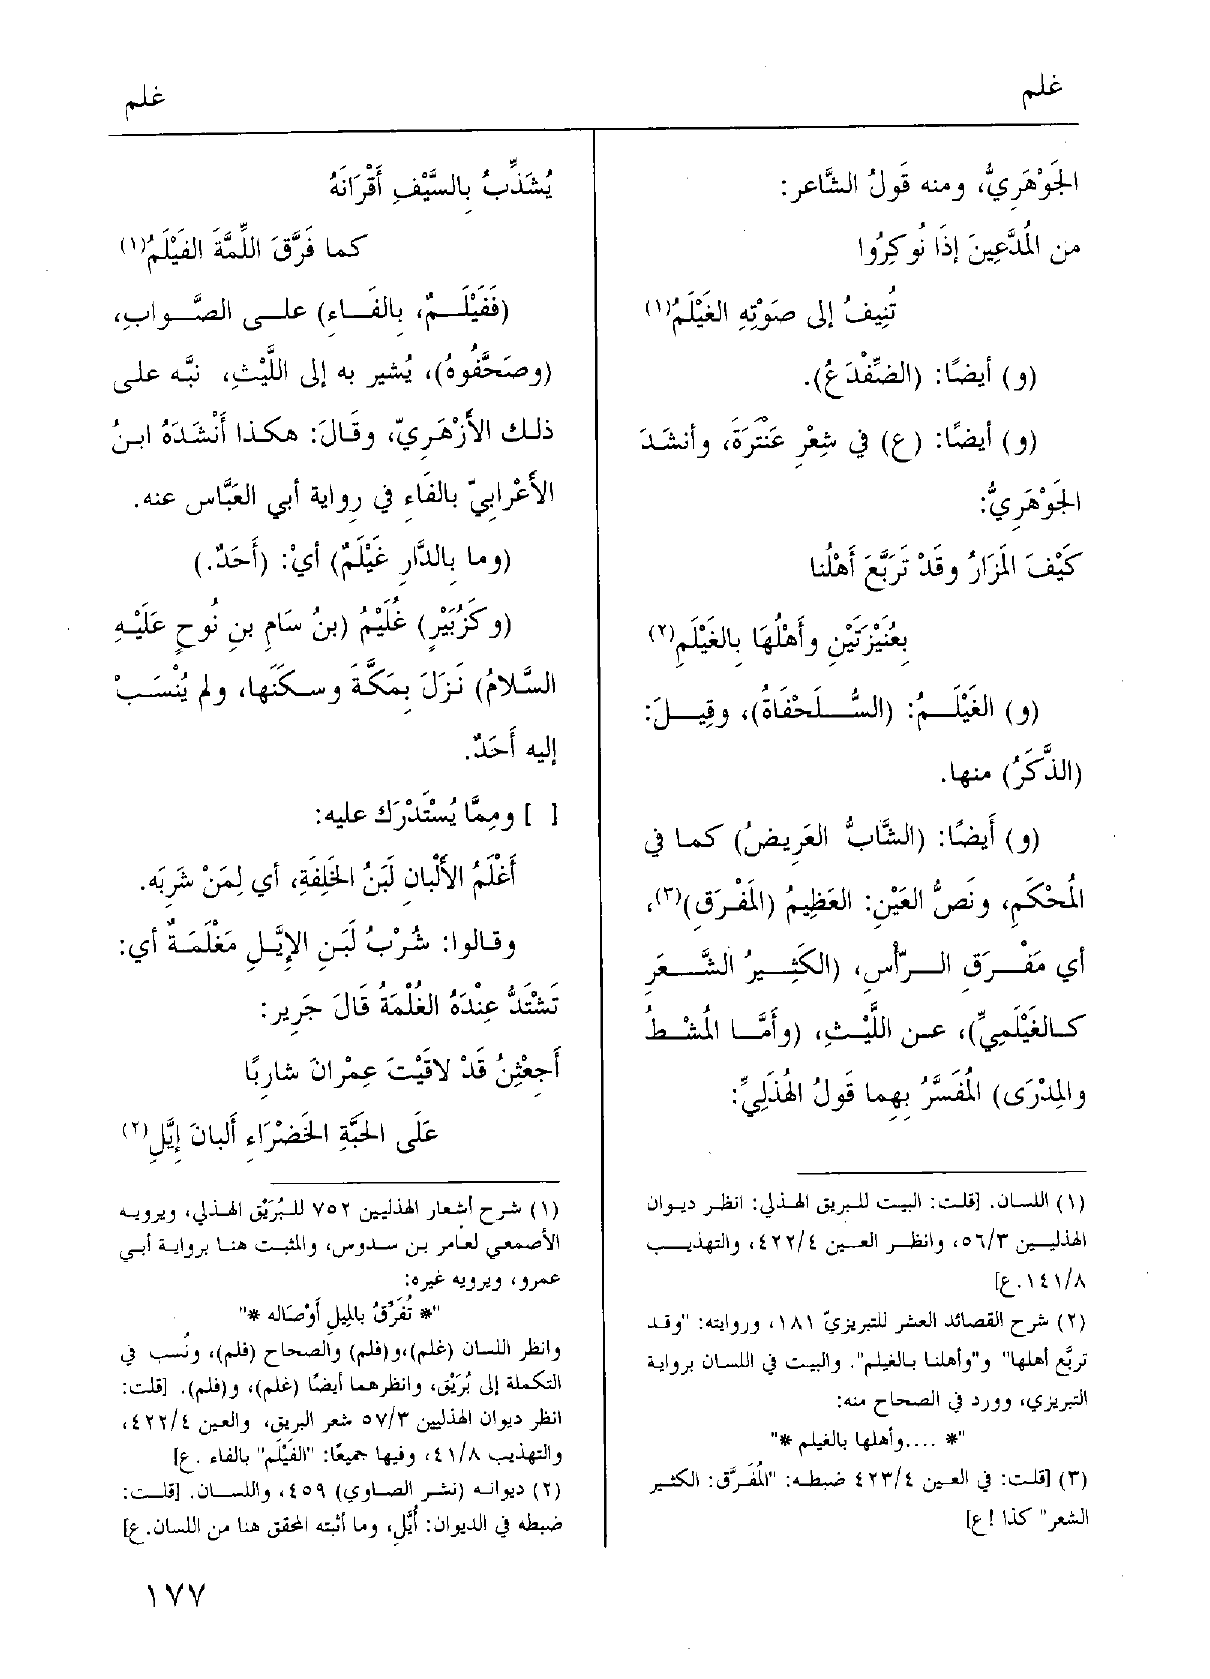 غلم
غلم
الجَوْهَرِيُّ، ومنه قَولُ الشَّاعر:
من المُدَّعِينَ إذَا نُوكِرُوا
تُنِيفُ إلى صَوْتِهِ الغَيْلَمُ(١)
(و) أيضًا: (الضِّفْدَعُ).
(و) أيضًا: (ع) في شِعْرِ عَنْتَرَةَ، وأنشَدَ
الجَوْهَرِيُّ:
كَيْفَ المَزَارُ وقَدْ تَرَبَّعَ أَهْلُنا
بِعُنَيْزَتَيْنِ وأَهْلُهَا بِالغَيْلَمِ(٢)
(و) الغَيْلَمُ: (السُّلَحْفَاةُ)، وقِيلَ:
(الذَّكَرُ) منها.
(و) أَيضًا: (الشَّابُّ العَرِيضُ) كما في
المُحْكَمِ، ونَصُّ العَيْنِ: العَظِيمُ (المَفْرَقِ)(٣)،
أي مَفْرَقِ الرَّأْسِ، (الكَثِيرُ الشَّعَرِ
كالغَيْلَمِيِّ)، عن اللَّيْثِ، (وأَمَّا المُشْطُ
والمِدْرَى) المُفَسَّرُ بِهِما قَولُ الهُذَلِيِّ:
(١) اللسان. [قلت: البيت للبريق الهذلي: انظر ديوان
الهذليين ٥٦/٣، وانظر العين ٤٢٢/٤، والتهذيب
١٤١/٨.ع]
(٢) شرح القصائد العشر للتبريزيّ ١٨١، وروايته: "وقد
تربَّع أهلها" و"وأهلنا بالغيلم". والبيت في اللسان برواية
التبريزي، وورد في الصحاح منه:
"* ....وأهلها بالغيلم *"
(٣) [قلت: في العين ٤٢٣/٤ ضبطه: "المُفَرَّق: الكثير
الشعر" كذا ! ع]
يُشَذِّبُ بِالسَّيْفِ أَقْرَانَهُ
كما فَرَّقَ اللِّمَّةَ الفَيْلَمُ(١)
(فَفَيْلَمٌ، بِالفَاءِ) على الصَّوابِ،
(وصَحَّفُوهُ)، يُشير به إلى اللَّيْثِ، نبَّه على
ذلك الأَزْهَرِيّ، وقَالَ: هكذا أَنْشَدَهُ ابنُ
الأَعْرابِيّ بالفَاءِ في رِواية أبي العَبَّاس عنه.
(وما بِالدَّارِ غَيْلَمٌ) أيْ: (أَحَدٌ.)
(وكَزُبَيْرٍ) غُلَيْمُ (بنُ سَامِ بنِ نُوحٍ عَلَيْهِ
السَّلامُ) نَزَلَ بِمَكَّةَ وسكَنَها، ولم يُنْسَبْ
إليه أَحَدٌ.
[ ] ومِمَّا يُسْتَدْرَك عليه:
أَغْلَمُ الأَلْبَانِ لَبَنُ الخَلِفَةِ، أي لِمَنْ شَرِبَه.
وقالوا: شُرْبُ لَبَنِ الإِيَّلِ مَغْلَمَةٌ أي:
تَشْتَدُّ عِنْدَهُ الغُلْمَةُ قَالَ جَرِير:
أَجِعْثِنُ قَدْ لاقَيْتَ عِمْرانَ شارِبًا
عَلَى الحَبَّةِ الخَضْرَاءِ أَلبانَ إِيَّلِ(٢)
(١) شرح أشعار الهذليين ٧٥٢ للبُرَيْق الهذلي، ويرويه
الأصمعي لعامر بن سدوس، والمثبت هنا برواية أبي
عمرو، ويرويه غيره:
"* تُفَرِّقُ بالمِيلِ أَوْصَاله *"
وانظر اللسان (غلم)،و(فلم) والصحاح (فلم)، ونُسب في
التكملة إلى بُرَيْق، وانظرهما أيضًا (غلم)، و(فلم). [قلت:
انظر ديوان الهذليين ٥٧/٣ شعر البريق، والعين ٤٢٢/٤،
والتهذيب ٤١/٨، وفيها جميعًا: "الفَيْلَم" بالفاء .ع]
(٢) ديوانه (نشر الصاوي) ٤٥٩، واللسان. [قلت:
ضبطه في الديوان: أُيَّلِ، وما أثبته المحقق هنا من اللسان.ع]
١٧٧